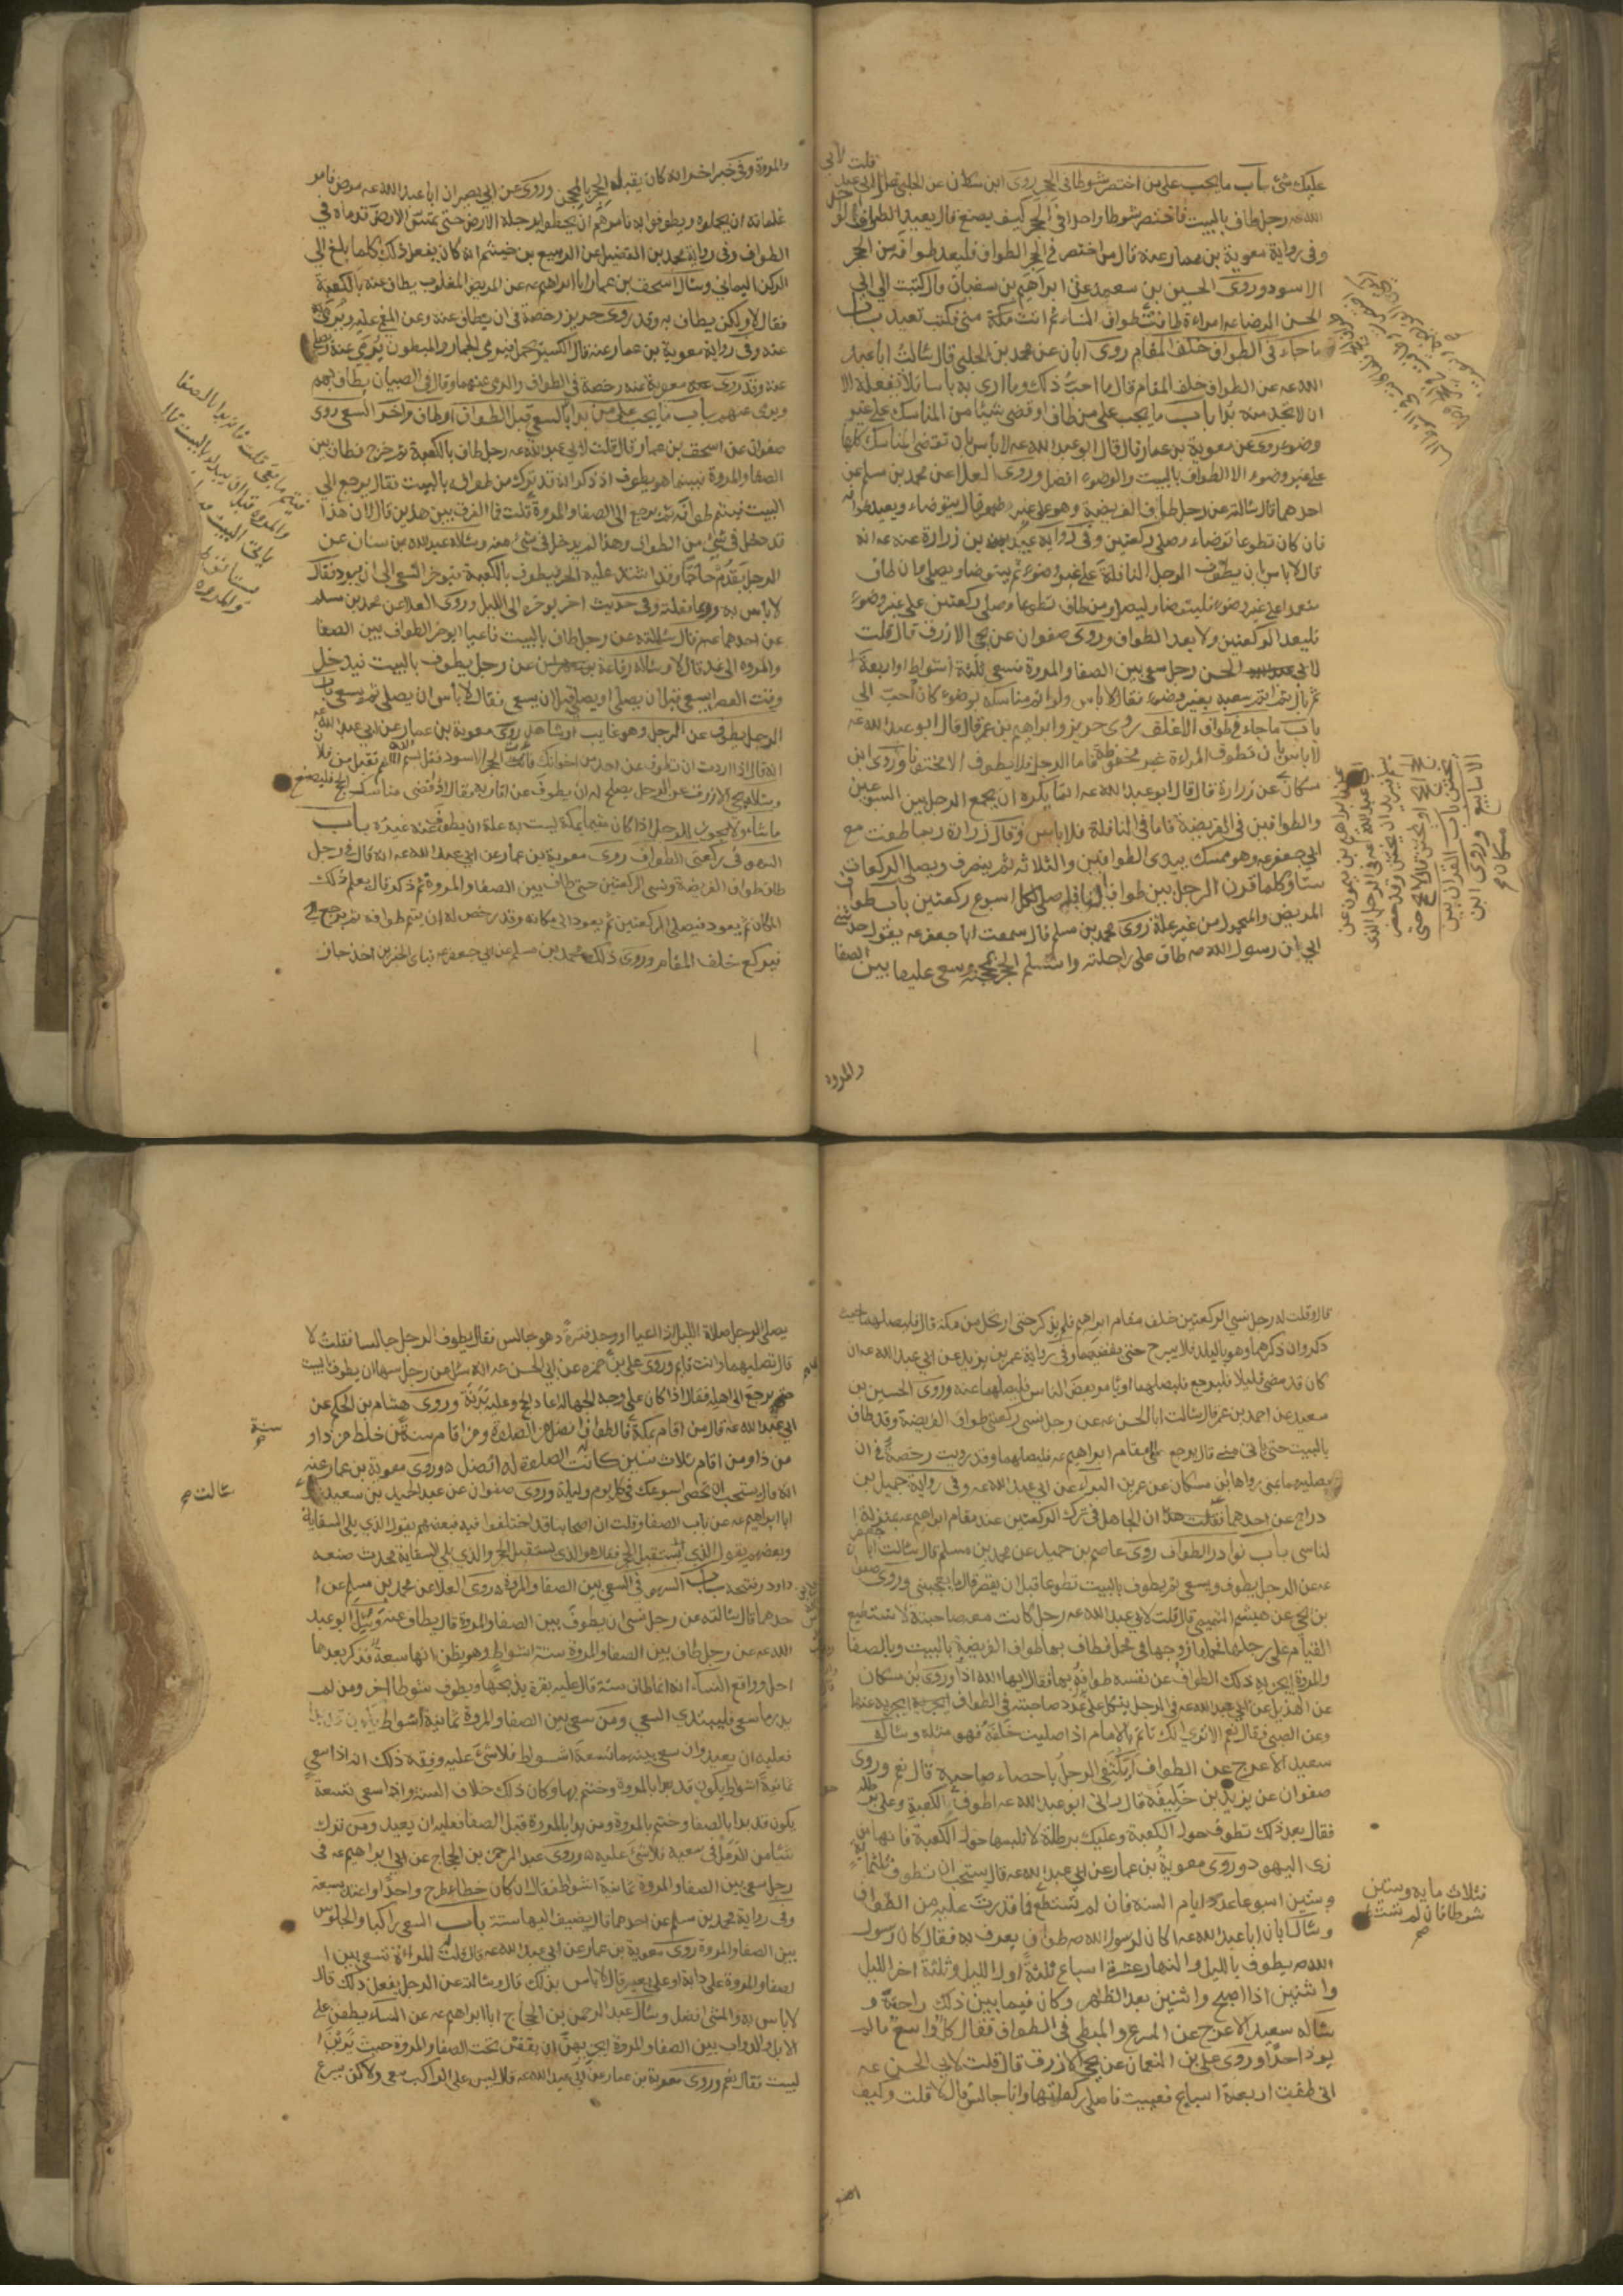 عليك شئ باب ما يجب على من اختصر شوطا في الحجر روى ابن مسكان عن الحلبي قال قلت لابي عبد
الله عه رجل طاف بالبيت فاختصر شوطا واحدا في الحجر كيف يصنع قال يعيد الطواف
وفي رواية معوية بن عمار عنه قال من اختصر في الحجر الطواف فليعد طوافه من الحجر
الاسود وروى الحسين بن سعيد عن ابراهيم بن سفيان قال كتبت الى ابي
الحسن الرضا عه امراة طافت طواف
ما جاء في الطواف خلف المقام روى ابان عن محمد بن الحلبي قال سالت ابا عبد
الله عه عن الطواف خلف المقام قال ما احب ذلك وما ارى به باسا فلا تفعله الا
ان لا تجد منه بدا باب ما يجب على من طاف او قضى شيئا من المناسك على غير
وضوء روى عن معوية بن عمار قال قال ابو عبد الله عه لا باس بان تقضي المناسك كلها
على غير وضوء الا الطواف بالبيت والوضوء افضل وروى العلا عن محمد بن مسلم عن
احدهما قال سالته عن رجل طاف الفريضة وهو على غير طهر قال يتوضاء ويعيد طوافه
فان كان تطوعا توضاء وصلى ركعتين وفي رواية عبيد بن زرارة عنه عه انه
قال لا باس ان يطوف الرجل النافلة على غير وضوء ثم يتوضا ويصلي فان طاف
متعمدا على غير وضوء فليتوضا وليصل ومن طاف تطوعا وصلى ركعتين على غير وضوء
فليعد الركعتين ولا يعد الطواف وروى صفوان عن يحيى الازرق قال قلت
لابي الحسن رجل سعى بين الصفا والمروة فسعى ثلثة اشواط او اربعة
ثم بال ثم اتم سعيه بغير وضوء فقال لا باس ولو اتم مناسكه بوضوء كان احب الي
باب ما جاء في طواف الاغلف روى حريز وابراهيم بن عمر قال قال ابو عبد الله عه
لا باس بان تطوف المراة غير مخفوضة فاما الرجل فلا يطوف الا مختتنا وروى ابن
مسكان عن زرارة قال قال ابو عبد الله عه انما يكره ان يجمع الرجل بين السبوعين
والطوافين في الفريضة فاما في النافلة فلا باس وقال زرارة ربما طفت مع
ابي جعفر عه وهو ممسك بيدي الطوافين والثلاثة ثم ينصرف ويصلي الركعات
ستا وكلما قرن الرجل بين طواف النافلة صلى لكل اسبوع ركعتين باب طواف
المريض والمحمول من غير علة روى محمد بن مسلم قال سمعت ابا جعفر عه يقول حدثني
ابي ان رسول الله صه طاف على راحلته واستلم الحجر بمحجنه وسعى عليها بين الصفا
والمروة
والمروة وفي خبر اخر انه كان يقبل الحجر بالمحجن وروى عن ابي بصير ان ابا عبد الله عه مرض فامر
غلمانه ان يحملوه ويطوفوا به فامرهم ان يخطوا برجله الارض حتى تمس الارض قدماه في
الطواف وفي رواية محمد بن الفضيل عن الربيع بن خيثم انه كان يفعل ذلك كلما بلغ الى
الركن اليماني وسال اسحق بن عمار ابا ابراهيم عه عن المريض المغلوب يطاف عنه بالكعبة
فقال لا ولكن يطاف به وقد روى حريز رخصة في ان يطاف عنه وعن المغمى عليه ويرمى
عنه وفي رواية معوية بن عمار عنه قال الكسير يحمل فيرمي الجمار والمبطون يرمى عنه
عنه وقد روى معوية عنه رخصة في الطواف والرمي عنهما وقال في الصبيان يطاف بهم
ويرمى عنهم باب ما يجب على من بدا بالسعي قبل الطواف او طاف واخر السعي روى
صفوان عن اسحق بن عمار قال قلت لابي عبد الله عه رجل طاف بالكعبة ثم خرج فطاف بين
الصفا والمروة فبينما هو يطوف اذ ذكر انه قد ترك من طوافه بالبيت فقال يرجع الى
البيت فيتم طوافه ثم يرجع الى الصفا والمروة قلت فما الفرق بين هذين قال لان هذا
قد دخل في شئ من الطواف وهذا لم يدخل في شئ منه وساله عبد الله بن سنان عن
الرجل يقدم حاجا وقد اشتد عليه الحر فيطوف بالكعبة فيوخر السعي الى ان يبرد فقال
لا باس به وربما فعلته وفي حديث اخر يوخره الى الليل وروى العلا عن محمد بن مسلم
عن احدهما عه قال سالته عن رجل طاف بالبيت فاعيا ايوخر الطواف بين الصفا
والمروة الى غد قال لا وساله رفاعة عن رجل يطوف بالبيت فيدخل
وقت العصر ايسعى قبل ان يصلي او يصلي قبل ان يسعى فقال لا باس ان يصلي ثم يسعى باب
الرجل يطوف عن الرجل وهو غايب او شاهد روى معوية بن عمار عن ابي عبد الله عه
انه قال اذا اردت ان تطوف عن احد من اخوانك فات الحجر الاسود فقل بسم الله اللهم تقبل من فلان
وساله يحيى الازرق عن الرجل يصلح له ان يطوف عن اقاربه فقال اذا قضى مناسك الحج فليصنع
ما شاء ولا يجوز للرجل اذا كان مقيما بمكة ليست به علة ان يطوف عنه غيره باب
السهو في ركعتي الطواف روى معوية بن عمار عن ابي عبد الله عه انه قال في رجل
طاف طواف الفريضة ونسي الركعتين حتى طاف بين الصفا والمروة ثم ذكر قال يعلم ذلك
المكان ثم يعود فيصلي الركعتين ثم يعود الى مكانه وقد رخص له ان يتم طوافه ثم يرجع
فيركع خلف المقام وروى ذلك محمد بن مسلم عن ابي جعفر عه فباي الخبرين اخذ جاز
قال وقلت له رجل نسي الركعتين خلف مقام ابراهيم فلم يذكر حتى ارتحل من مكة قال فليصلهما حيث
ذكر وان ذكرهما وهو بالبلد فلا يبرح حتى يقضيهما وفي رواية عمر بن يزيد عن ابي عبد الله عه ان
كان قد مضى قليلا فليرجع فليصلهما او يامر بعض الناس فليصلهما عنه وروى الحسين بن
سعيد عن احمد بن عمر قال سالت ابا الحسن عه عن رجل نسي ركعتي طواف الفريضة وقد طاف
بالبيت حتى ياتي منى قال يرجع الى مقام ابراهيم عه فليصلهما وقد رويت رخصة في ان
يصليهما بمنى رواها ابن مسكان عن عمر بن البراء عن ابي عبد الله عه وفي رواية جميل بن
دراج عن احدهما ان الجاهل في ترك الركعتين عند مقام ابراهيم عه بمنزلة ا
لناسي باب نوادر الطواف روى عاصم بن حميد عن محمد بن مسلم قال سالت ابا جعفر
عه عن الرجل يطوف ويسعى ثم يطوف بالبيت تطوعا قبل ان يقصر قال ما يعجبني وروى صفوا
بن يحيى عن هيثم التميمي قال قلت لابي عبد الله عه رجل كانت معه صاحبته لا تستطيع
القيام على رجلها فحملها زوجها في محمل فطاف بها طواف الفريضة بالبيت وبالصفا
والمروة ايجزيه ذلك الطواف عن نفسه طوافه بها فقال ايها الله اذا وروى ابن مسكان
عن الهذيل عن ابي عبد الله عه في الرجل يتكل على عدد صاحبته في الطواف ايجزيه عنها
وعن الصبي فقال نعم الا ترى انك تاتم بالامام اذا صليت خلفه فهو مثله وساله
سعيد الاعرج عن الطواف ايكتفي الرجل باحصاء صاحبه قال نعم وروى
صفوان عن يزيد بن خليفة قال راني ابو عبد الله عه اطوف حول الكعبة وعلي برطله
فقال بعد ذلك تطوف حول الكعبة وعليك برطلة لا تلبسها حول الكعبة فانها من
زي اليهود وروى معوية بن عمار عن ابي عبد الله عه قال يستحب ان تطوف ثلثماية
وستين اسبوعا عدد ايام السنه فان لم تستطع فما قدرت عليه من الطواف
وساله ابان ابا عبد الله عه اكان لرسول الله صه طواف يعرف به فقال كان رسول
الله صه يطوف بالليل والنهار عشرة اسباع ثلثة اول الليل وثلثة اخر الليل
واثنين اذا اصبح واثنين بعد الظهر وكان فيما بين ذلك راحته و
ساله سعيد الاعرج عن المسرع والمبطي في الطواف فقال كل واسع ما لم
يوذ احدا وروى علي بن النعمان عن يحيى الازرق قال قلت لابي الحسن عه
اني طفت اربعة اسباع فعييت فاصلي ركعاتها وانا جالس قال لا قلت وكيف
فثلاث مايه وستين
شوطا فان لم تستط
يصلي الرجل صلاة الليل اذا اعيا او وجد فترة وهو جالس فقال يطوف الرجل جالسا فقلت لا
قال فصليهما وانت قايم وروى علي بن ابي حمزه عن ابي الحسن عه انه سئل عن رجل سها ان يطوف بالبيت
حتى يرجع الى اهله فقال اذا كان على وجه الجهالة اعاد الحج وعليه بدنة وروى هشام بن الحكم عن
ابي عبد الله عه قال من اقام بمكة سنة فالطواف افضل من الصلوة ومن اقام سنتين خلط من ذا و
من ذا ومن اقام ثلاث سنين كانت الصلوة له افضل وروى معوية بن عمار عنه
انه قال يستحب ان تحصي اسبوعك في كل يوم وليلة وروى صفوان عن عبد الحميد بن سعيد قال
ابا ابراهيم عه عن باب الصفا وقلت ان اصحابنا قد اختلفوا فيه فبعضهم يقول الذي يلي السقاية
وبعضهم يقول الذي يستقبل الحجر فقال هو الذي يستقبل الحجر والذي يلي السقاية محدث صنعه
داود وفتحه باب السهو في السعي بين الصفا والمروة وروى العلا عن محمد بن مسلم عن ا
حدهما قال سالته عن رجل نسي ان يطوف بين الصفا والمروة قال يطاف عنه وسئل ابو عبد
الله عه عن رجل طاف بين الصفا والمروة ستة اشواط وهو يظن انها سبعة فذكر بعد ما
احل وواقع النساء انه انما طاف ستة قال عليه بقرة يذبحها ويطوف شوطا اخر ومن لم
يدر ما سعى فليبتدي السعي ومن سعى بين الصفا والمروة ثمانية اشواط
فعليه ان يعيد وان سعى بينهما تسعة اشواط فلا شئ عليه وفقه ذلك انه اذا سعى
ثمانية اشواط يكون قد بدا بالمروة وختم بها وكان ذلك خلاف السنة واذا سعى تسعة
يكون قد بدا بالصفا وختم بالمروة ومن بدا بالمروة قبل الصفا فعليه ان يعيد ومن ترك
شيئا من الرمل في سعيه فلا شئ عليه وروى عبد الرحمن بن الحجاج عن ابي ابراهيم عه في
رجل سعى بين الصفا والمروة ثمانية اشواط فقال ان كان خطا طرح واحدا واعتد بسبعة
وفي رواية محمد بن مسلم عن احدهما قال يضيف اليها ستة باب السعي راكبا والجلوس
بين الصفا والمروة روى معوية بن عمار عن ابي عبد الله عه قال قلت المراة تسعى بين ا
لصفا والمروة على دابة او على بعير قال لا باس بذلك قال وسالته عن الرجل يفعل ذلك قال
لا باس به والمشي افضل وسال عبد الرحمن بن الحجاج ابا ابراهيم عه عن النساء يطفن على
الابل والدواب بين الصفا والمروة ايجزيهن ان يقفن تحت الصفا والمروة حيث يرين ا
لبيت فقال نعم وروى معوية بن عمار عن ابي عبد الله عه قال ليس على الراكب سعي ولاكن يسرع
سنة
سالت صح